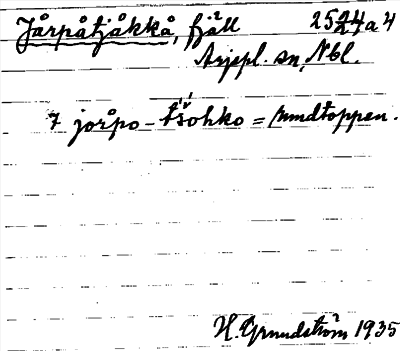 Jårpåtjåkkå, fjäll 2524a4
Arjepl. sn, Nbl.
7 jorpo-tšohko = rundtoppen.
H. Grundström 1935